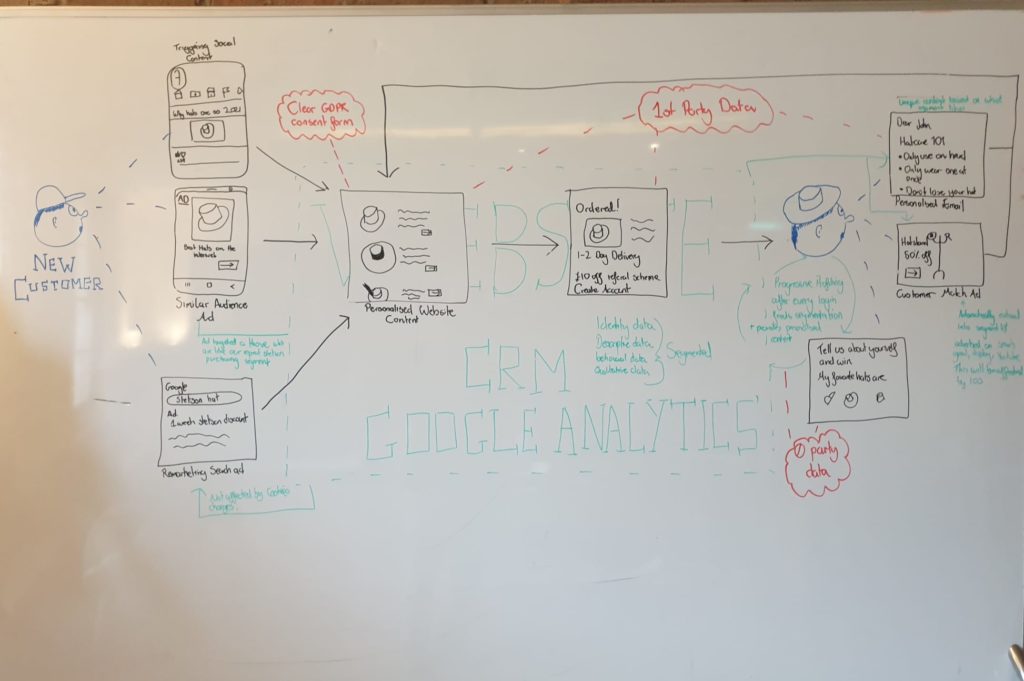 Triggering Social
Content
Why hats are so 2021
AD
Best Hats on the
Interweb
Similar Audience
Ad
Ad targeted @ those who
are like our repeat stetson
purchasing segment
NEW
CUSTOMER
Google
Stetson hat
Ad
1 week stetson discount
Remarketing Search ad
Not affected by Cookie
changes.
Clear GDPR
consent form
WEBSITE
Personalised Website
Content
1st Party Data
Ordered!
1-2 Day Delivery
£10 off referral scheme
Create Account
Identity data
Descriptive data
behavioral data
Qualitative data
Segmental
CRM
GOOGLE ANALYTICS
Progressive Profiling
after every login
segmentation
+ personalised
content
Unique content based on what
Dear John
Hatcare 101
• Only use on head
• Only wear one at
once!
• Don't lose your hat
Personalised Email
50% off
Customer Match Ad
Automatically
into segment list
This will be
by
Tell us about yourself
and win
My favorite hats are
0 party
data